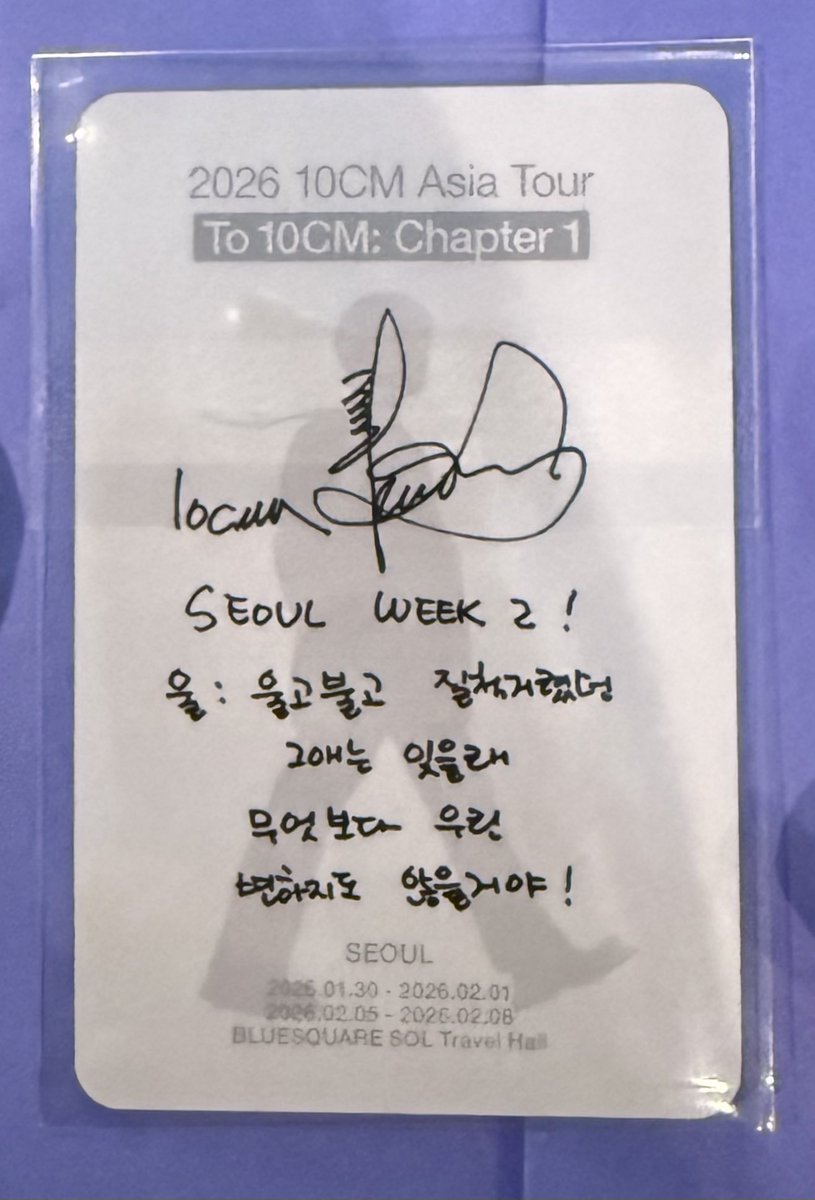 2026 10CM Asia Tour
To 10CM: Chapter 1
10cm
SEOUL WEEK 2!
울: 울고불고 질척거렸던
그애는 잊을래
무엇보다 우린
변하지도 않을거야!
SEOUL
2026.01.30 - 2026.02.01
2026.02.05 - 2026.02.08
BLUESQUARE SOL Travel Hall